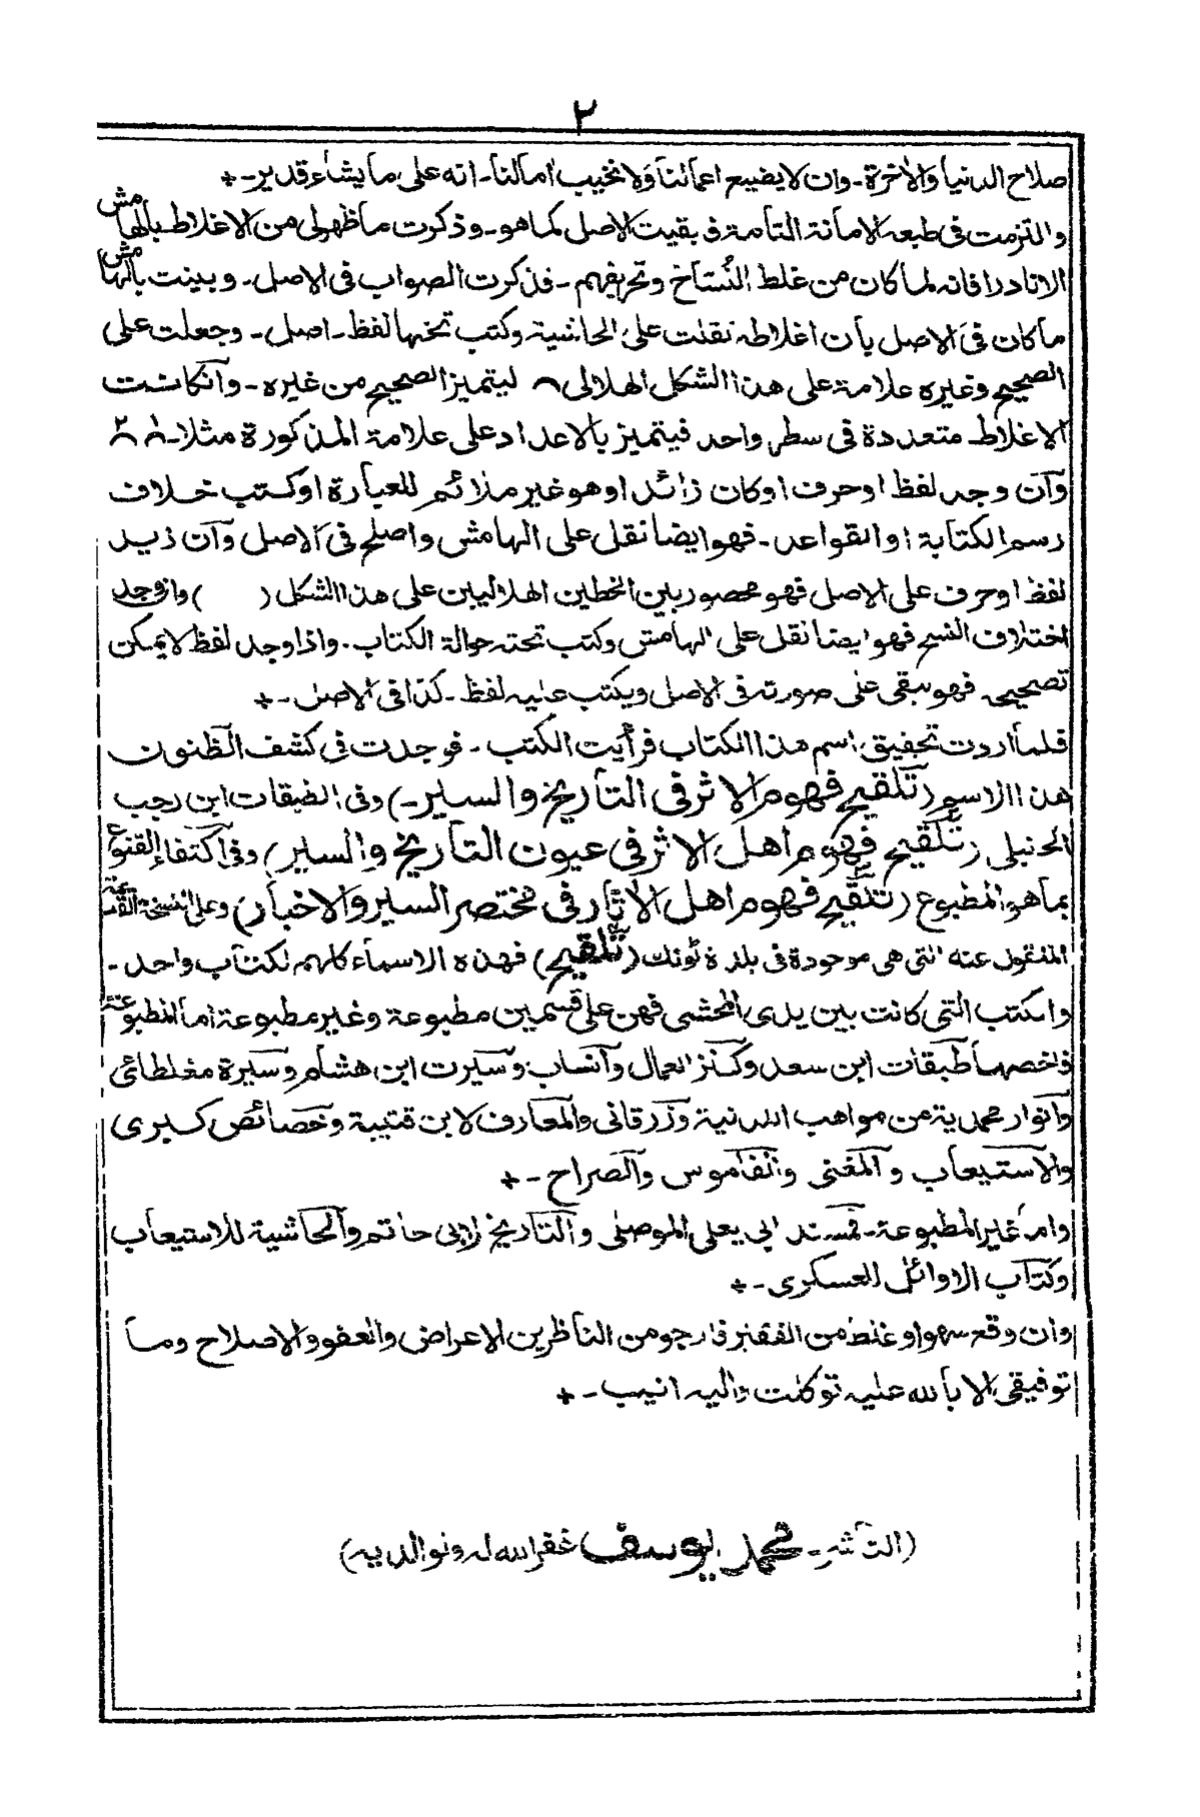 ٢
صلاح الدنيا والآخرة۔ وان لا يضيع اعمالنا ولا نخيب امالنا۔ انه على ما يشاء قدير۔ +
والتزمت فى طبعه الامانة التامة فبقيت الاصل كما هو۔ وذكرت ما ظهر لى من الاغلاط بالهامش
الا نادرا فانه لما كان من غلط النُسّاخ وتحريفهم۔ فذكرت الصواب فى الاصل۔ وبينت بالهامش
ما كان فى الاصل بان اغلاطه نقلت على الحاشية وكتب تحتها لفظ۔ اصل۔ وجعلت على
الصحيح وغيره علامة على هذا الشكل الهلالى ؎ ليتميز الصحيح من غيره۔ وان كانت
الاغلاط متعددة فى سطر واحد فيتميز بالاعداد على علامة المذكورة مثلا۔ ١ ٢
وان وجد لفظ او حرف او كان زائد او هو غير ملائم للعبارة او كتب خلاف
رسم الكتابة او القواعد۔ فهو ايضا نقل على الهامش واصلح فى الاصل وان زيد
لفظ او حرف على الاصل فهو محصور بين الخطين الهلاليين على هذا الشكل (    ) وان وجد
اختلاف النسخ فهو ايضا نقل على الهامش وكتب تحته حوالة الكتاب۔ واذا وجد لفظ لا يمكن
تصحيحه فهو يبقى على صورته فى الاصل ويكتب عليه لفظ۔ كذا فى الاصل۔ +
فلما اردت تحقيق اسم هذا الكتاب فرأيت الكتب۔ فوجدت فى كشف الظنون
هذا الاسم (تلقيح فهوم الاثر فى التاريخ والسير۔) وفى الطبقات ابن رجب
الحنبلى (تلقيح فهوم اهل الاثر فى عيون التاريخ والسير) وفى اكتفاء القنوع
بما هو المطبوع (تلقيح فهوم اهل الآثار فى مختصر السير والاخبار) وعلى النسخة القلمية
المنقول عنه التى هى موجودة فى بلدة ٹونك (تلقيح) فهذه الاسماء كلهم لكتاب واحد۔
والكتب التى كانت بين يدى المحشى فهن على قسمين مطبوعة وغير مطبوعة اما المطبوعة
فاخصها طبقات ابن سعد وكنز العمال وانساب وسيرت ابن هشام وسيرة مغلطائى
وانوار محمدية من مواهب اللدنية وزرقانى والمعارف لابن قتيبة وخصائص كبرى
والاستيعاب والمغنى والقاموس والصراح۔ +
واما غير المطبوعة۔ فمسند ابى يعلى الموصلى والتاريخ لابى حاتم والحاشية للاستيعاب
وكتاب الاوائل للعسكرى۔ +
وان وقع سهو او غلط من الفقير فارجو من الناظرين الاعراض والعفو والاصلاح وما
توفيقى الا بالله عليه توكلت واليه انيب۔ +
(الناشر۔ محمد يوسف غفر الله له ولوالديه)